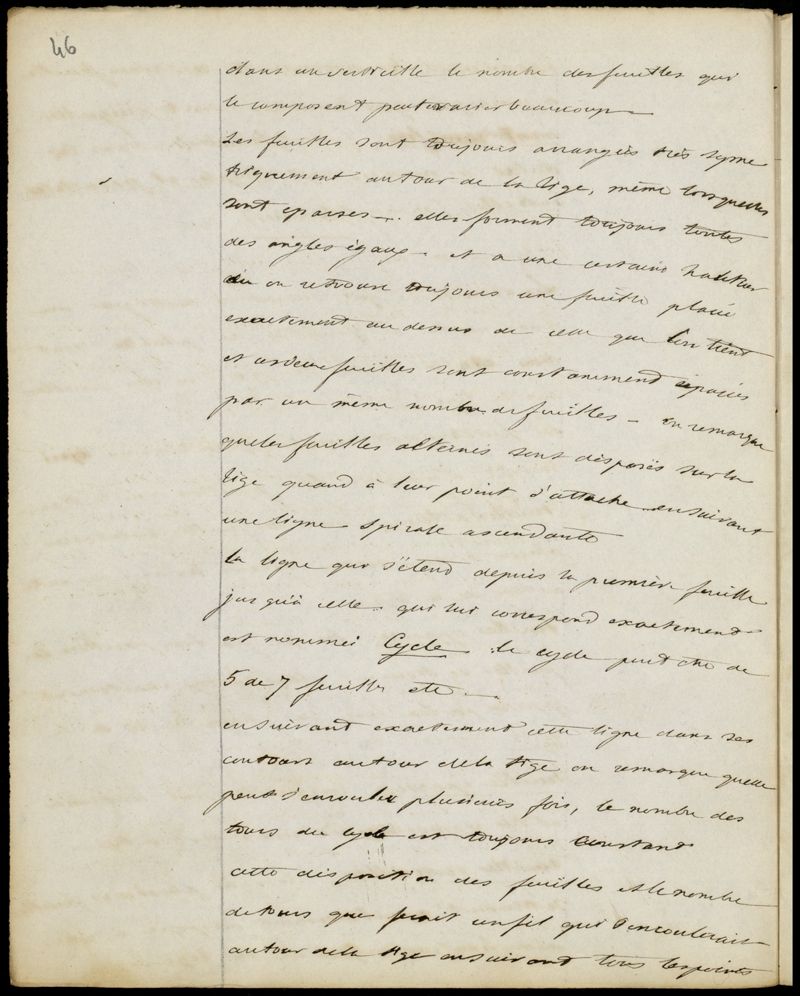 46
dans un verticille le nombre des feuilles qui
le composent peut varier beaucoup
Les feuilles sont toujours arrangées très syme
triquement autour de la tige, même lorsquelles
sont eparses. elles forment toujours toutes
des angles égaux. et a une certaine hauteur
on retrouve toujours une feuille placée
exactement au dessus de celle que l'on tient
et ces deux feuilles sont constamment espacées
par un même nombre de feuilles - on remarque
que les feuilles alternes sont disposées sur la
tige quand à leur point d'attache en suivant
une ligne spirale ascendante
La ligne qui s'étend depuis la première feuille
jusqu'à celle qui lui correspond exactement
est nommée Cycle. le cycle peut être de
5 de 7 feuilles etc.
en suivant exactement cette ligne dans ses
contours autour de la tige on remarque quelle
peut s'enrouler plusieurs fois, le nombre des
tours du cycle est toujours constant
cette disposition des feuilles et le nombre
de tours que ferait un fil qui s'enroulerait
autour de la tige en suivant tous les points